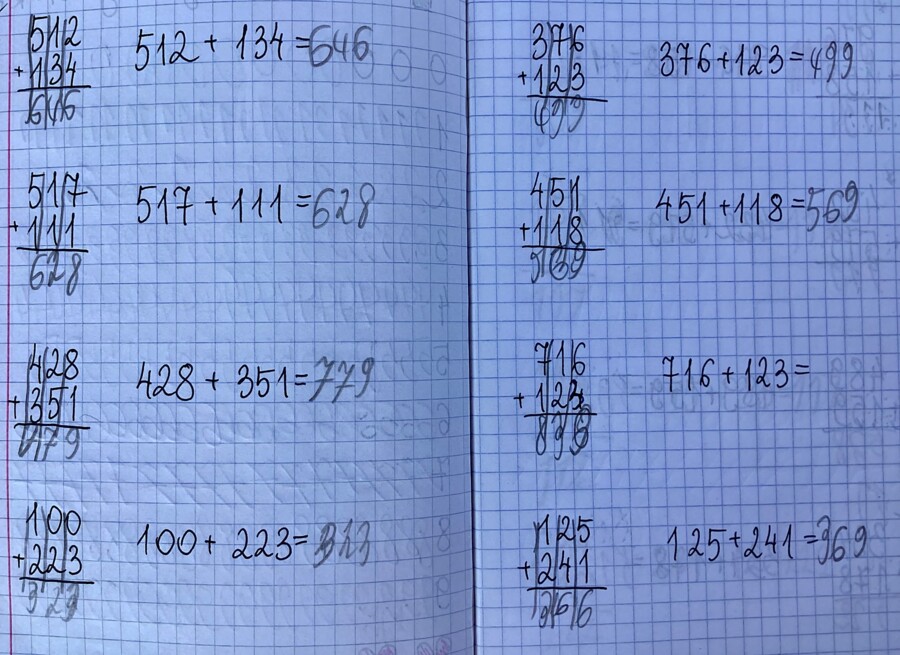 512
+134
646
512 + 134 = 646
517
+111
628
517 + 111 = 628
428
+351
779
428 + 351 = 779
100
+223
323
100 + 223 = 313
376
+123
499
376 + 123 = 499
451
+118
569
451 + 118 = 569
716
+123
716 + 123 =
125
+241
366
125 + 241 = 369